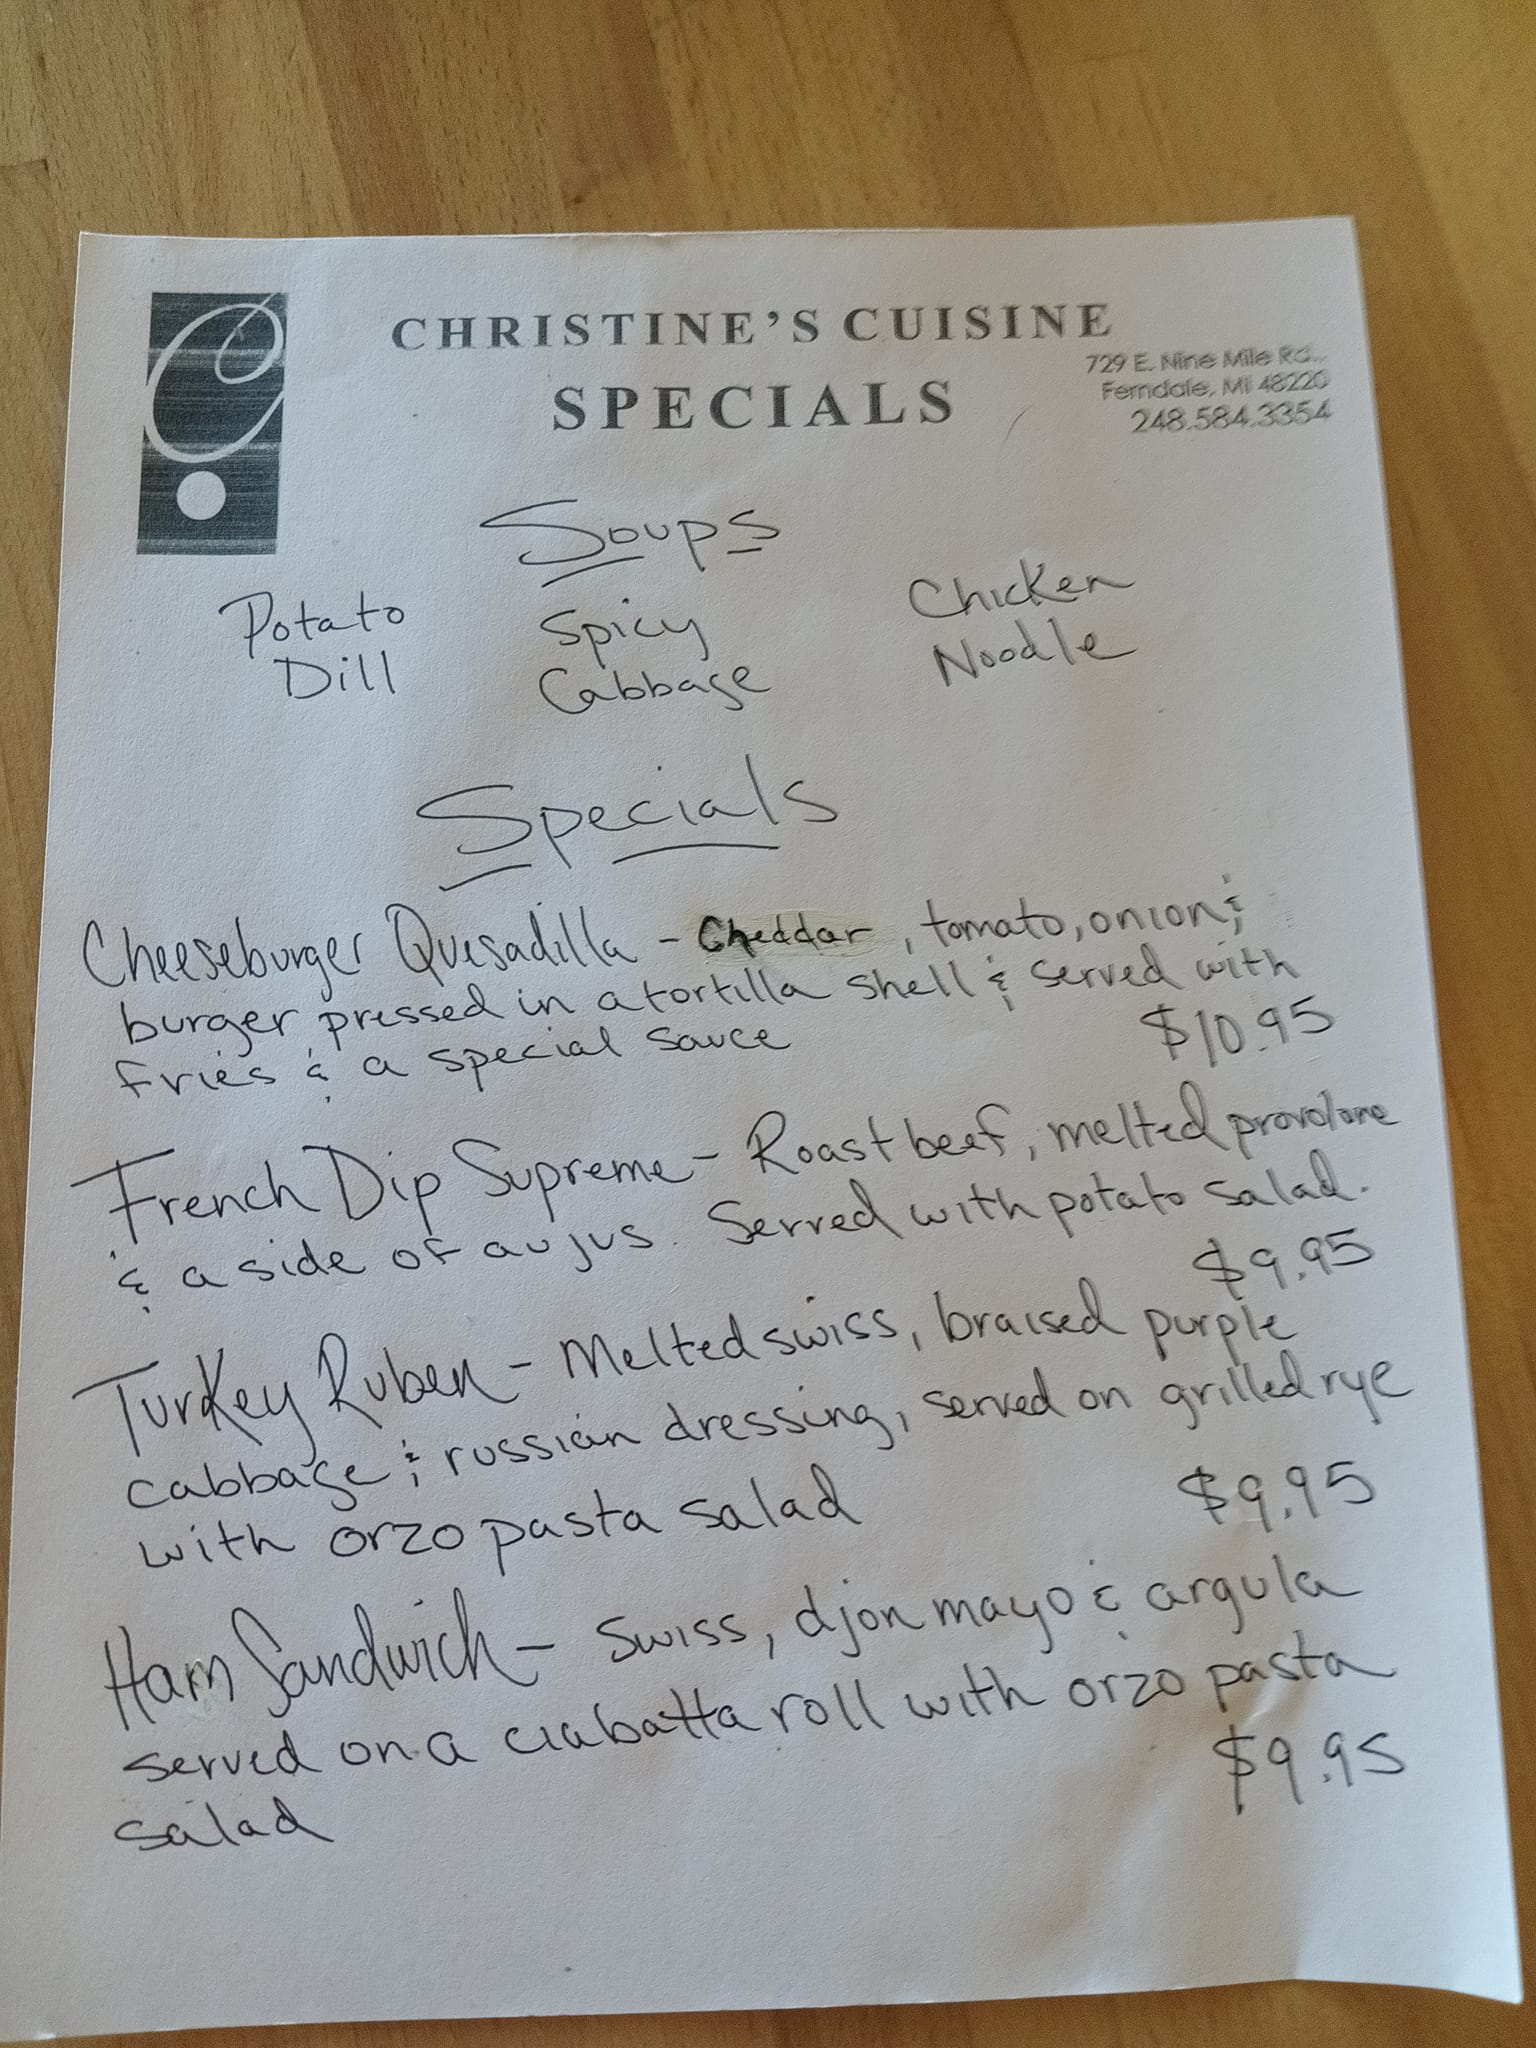 C
CHRISTINE'S CUISINE
SPECIALS
729 E. Nine Mile Rd..
Ferndale, MI 48220
248.584.3354
Soups
Potato Dill
Spicy Cabbage
Chicken Noodle
Specials
Cheeseburger Quesadilla - Cheddar, tomato, onion &
burger pressed in a tortilla shell & served with
fries & a special sauce $10.95
French Dip Supreme - Roast beef, melted provolone
& a side of au jus. Served with potato salad.
$9.95
Turkey Ruben - Melted swiss, braised purple
cabbage & russian dressing, served on grilled rye
with orzo pasta salad $9.95
Ham Sandwich - Swiss, djon mayo & argula
served on a ciabatta roll with orzo pasta
salad $9.95